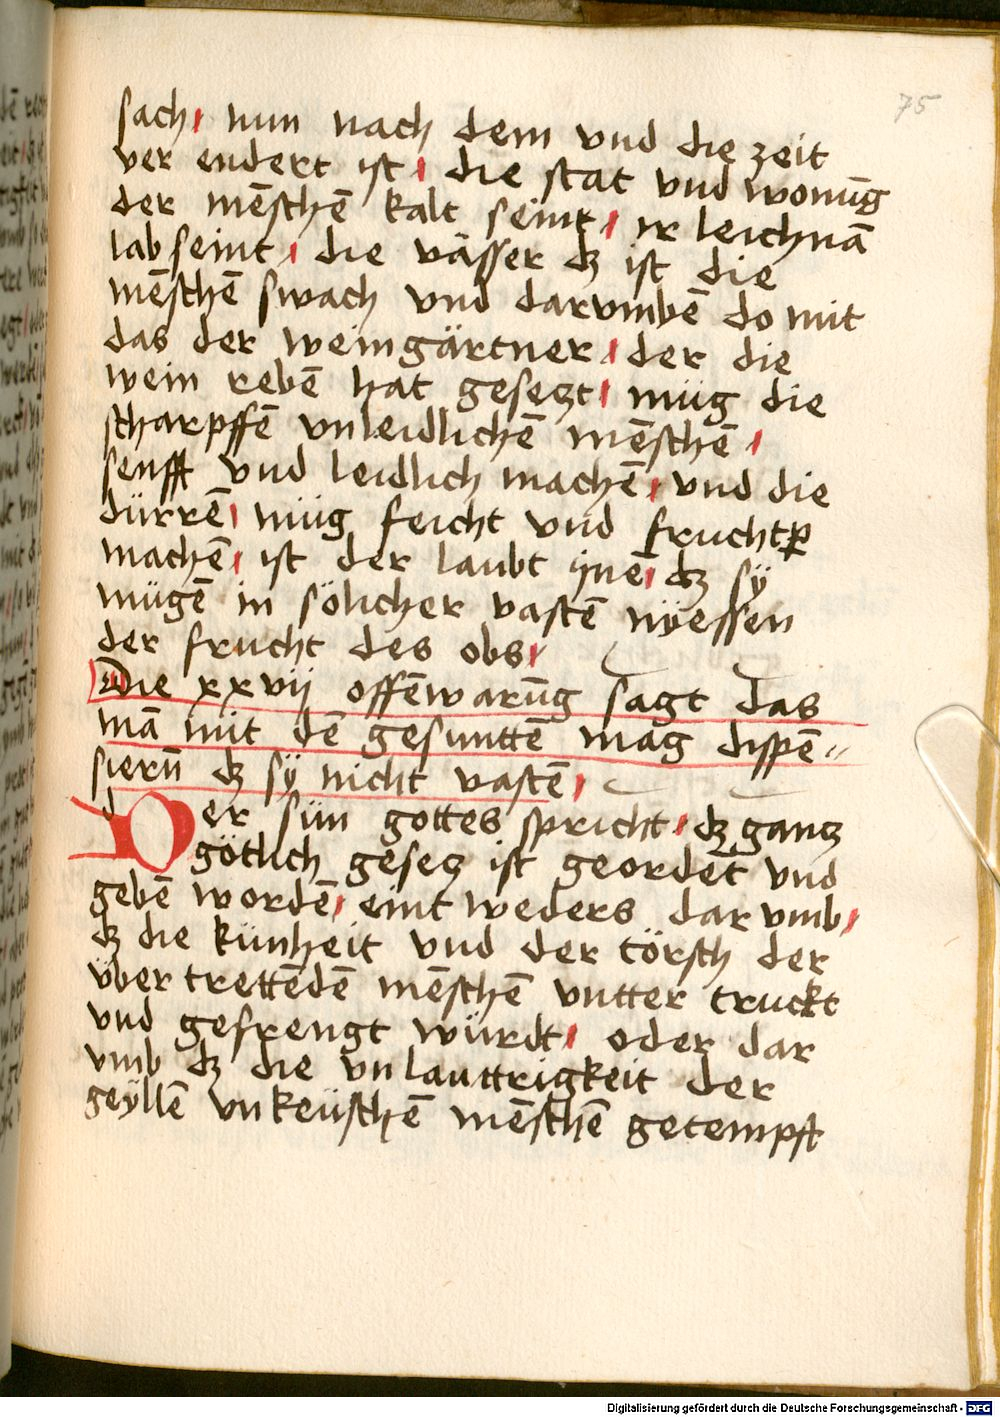 75
sach / nun nach dem vnd die zeit
ver endert ist / die stat vnd wonūg
der mēschē kalt seint / ir leichnā
lab seint / die vässer dz ist die
mēschē swach vnd darumbē do mit
das der weingärtner / der die
wein rebē hat gesetzt / müg die
scharpffē vnleidlichē mēschē /
senfft vnd leidlich machē / vnd die
dürrē / müg feicht vnd fruchtp̄
machē / ist der laubt ynē / dz sÿ
mügē in sölicher vastē nÿessen
der frucht des obs /
Die xxvij offēwarūg sagt das
mā mit dē gesunttē mag dispē//
sierñ dz sÿ nicht vastē /
Der sün gottes spricht / dz gantz
götlich gesetz ist geordēt vnd
gebē wordē / eint weders dar vmb /
dz die künheit vnd der törsch der
über trettēdē mēschē vntter truckt
vnd gefrengt würdt / oder dar
vmb dz die vnlauttrigkeit der
geÿllē vnkeüschē mēschē getempft
Digitalisierung gefördert durch die Deutsche Forschungsgemeinschaft - DFG